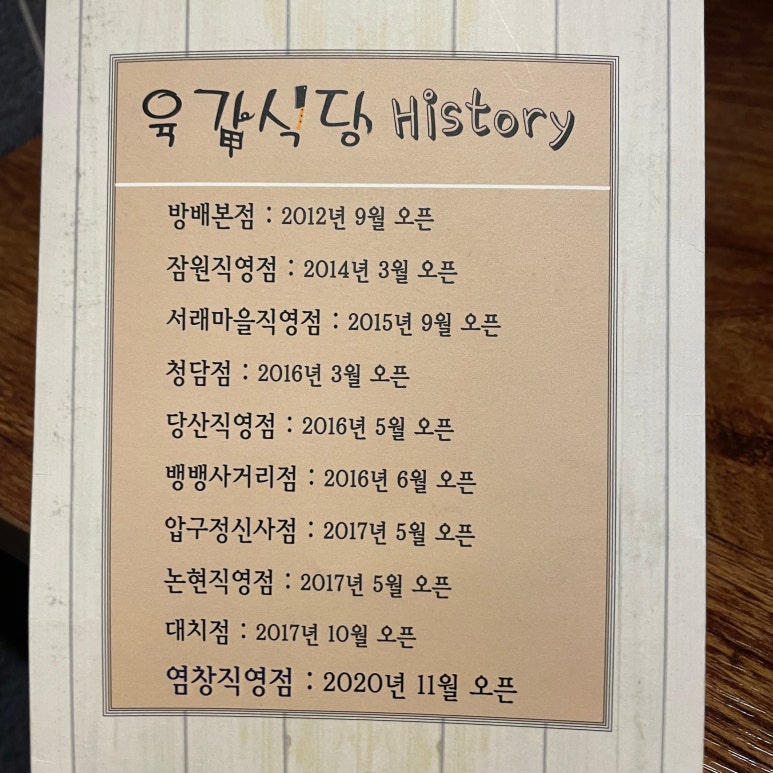 육갑식당 History
방배본점 : 2012년 9월 오픈
잠원직영점 : 2014년 3월 오픈
서래마을직영점 : 2015년 9월 오픈
청담점 : 2016년 3월 오픈
당산직영점 : 2016년 5월 오픈
뱅뱅사거리점 : 2016년 6월 오픈
압구정신사점 : 2017년 5월 오픈
논현직영점 : 2017년 5월 오픈
대치점 : 2017년 10월 오픈
염창직영점 : 2020년 11월 오픈